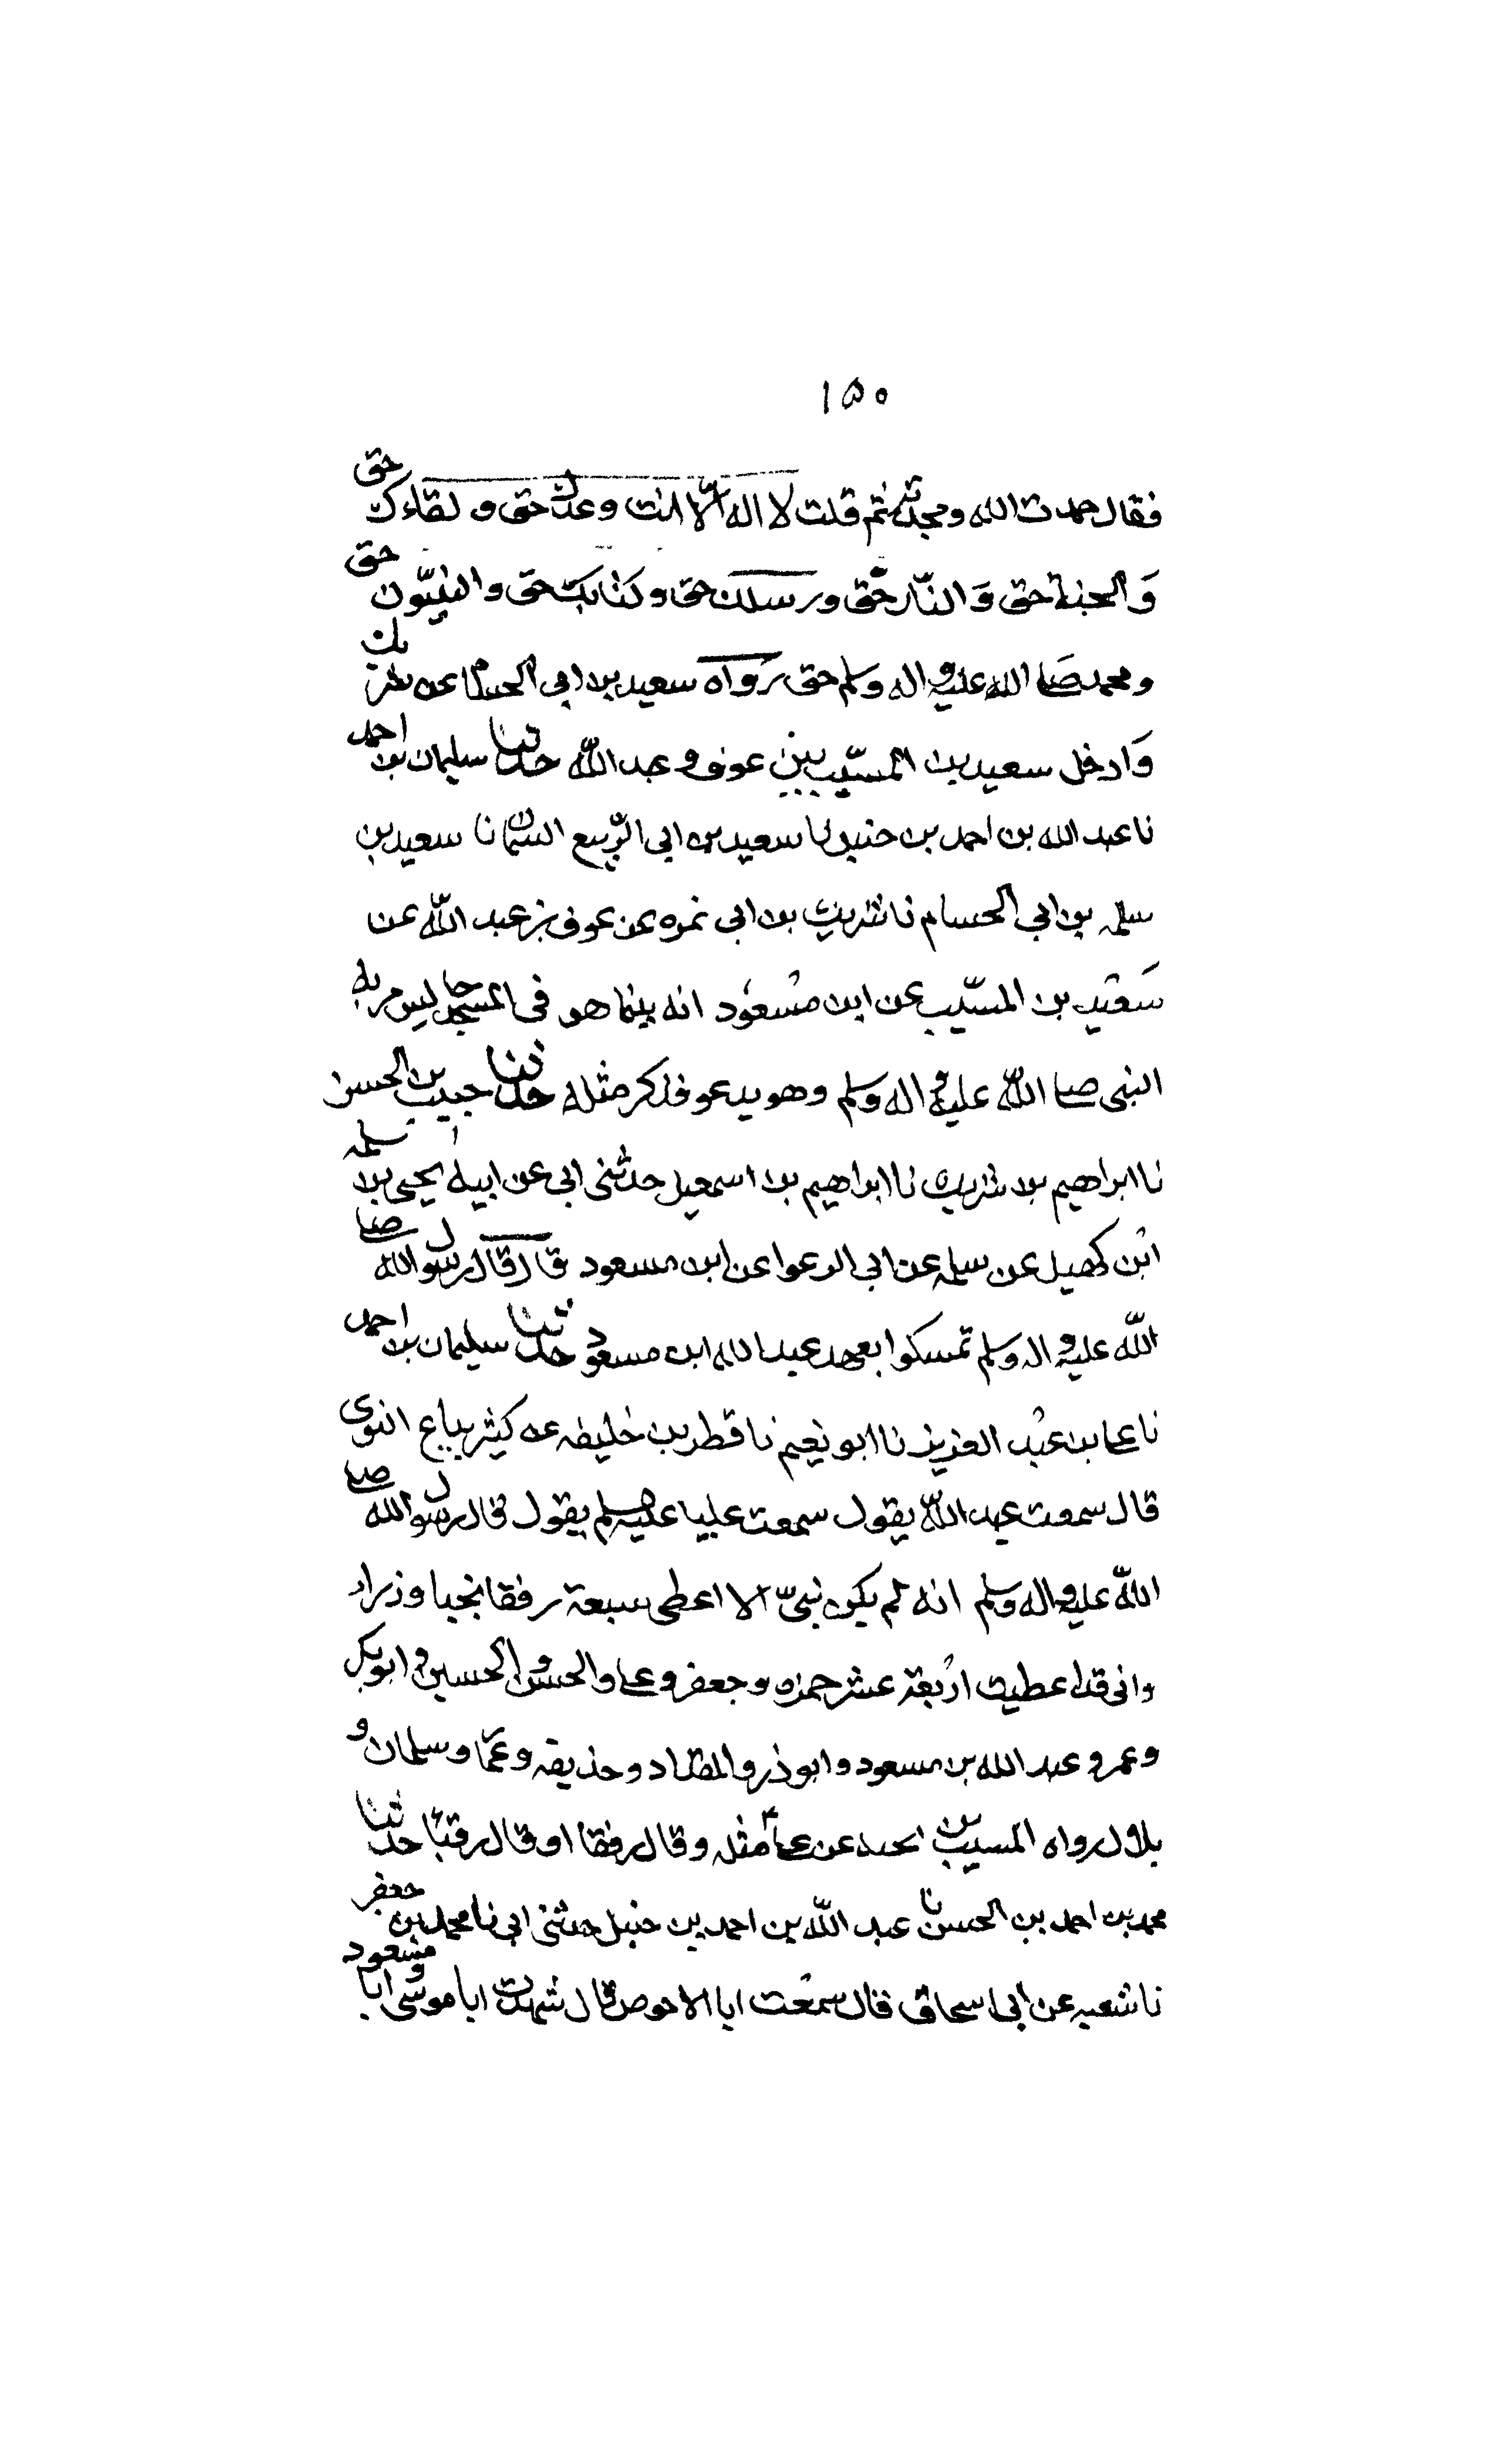 ١٥٠
فقال حمدت الله ومجدته ثم قلت لا اله الا انت وعدك حق و لقاءك حق
وَالجنة حق وَالنّار حّق ورسلك حق وكتابك حق والنبيّون حق
ومحمد صلى الله عليه واله وسلم حق رَواه سعيد بن ابي الحسام عن شريك
وَادخل سعيد بن المسيّب بين عون وعبد اللّه حدثنا سليمان بن احمد
نا عبد الله بن احمد بن حنبل نا سعيد بن ابي الرّبيع السمان نا سعيد بن
سلمه بن ابي الحسام نا شريك بن ابي نمره عن عون بن عبد اللّه عن
سَعيد بن المسيّب عن ابن مسعُود انه بينما هو في المسجد جالس مر به
النبي صلى اللّه عليه واله وسلم وهو يدعو فذكر مثله حدثنا حبيب بن الحسن
نا ابراهيم بن شريك نا ابراهيم بن اسمعيل حدثني ابي عن ابيه يحيى بن سلمه
ابْن كهيل عن سلمه عن ابي الزعرا عن ابن مسعود قال قال رسول الله صلى
اللّه عليه واله وسلم تمسكوا بعهد عبد الله ابن مسعود حدثنا سليمان بن احمد
نا على بن عبْد العزيز نا ابو نعيم نا قطر بن خليفه عن كثير بياع النوى
قال سمعت عبد اللّه يقول سمعت عليا عليه السلم يقول قال رسول الله صلى
اللّه عليه واله وسلم انه لم يكن نبىّ الا اعطى سبعة رفقا نجبا وزراء
وانى قد اعطيت ارْبعَة عشر حمزه وجعفر وعلى والحسن والحسين و ابو بكر
وعمر وعبد الله بن مسعود وابو ذر والمقداد وحذيفه وعمّا وسلمان و
بلال رواه المسيب بن عن على مثله وقال رفقا او قال رقبا حدثنا
محمد بن احمد بن الحسن نا عبد اللّه بن احمد بن حنبل حدثنى ابي نا محمد بن جعفر
نا شعبه عن ابي اسحاق قال سمعْت ابا الاحوص قال شهدت ابا موسى وابا مسعود